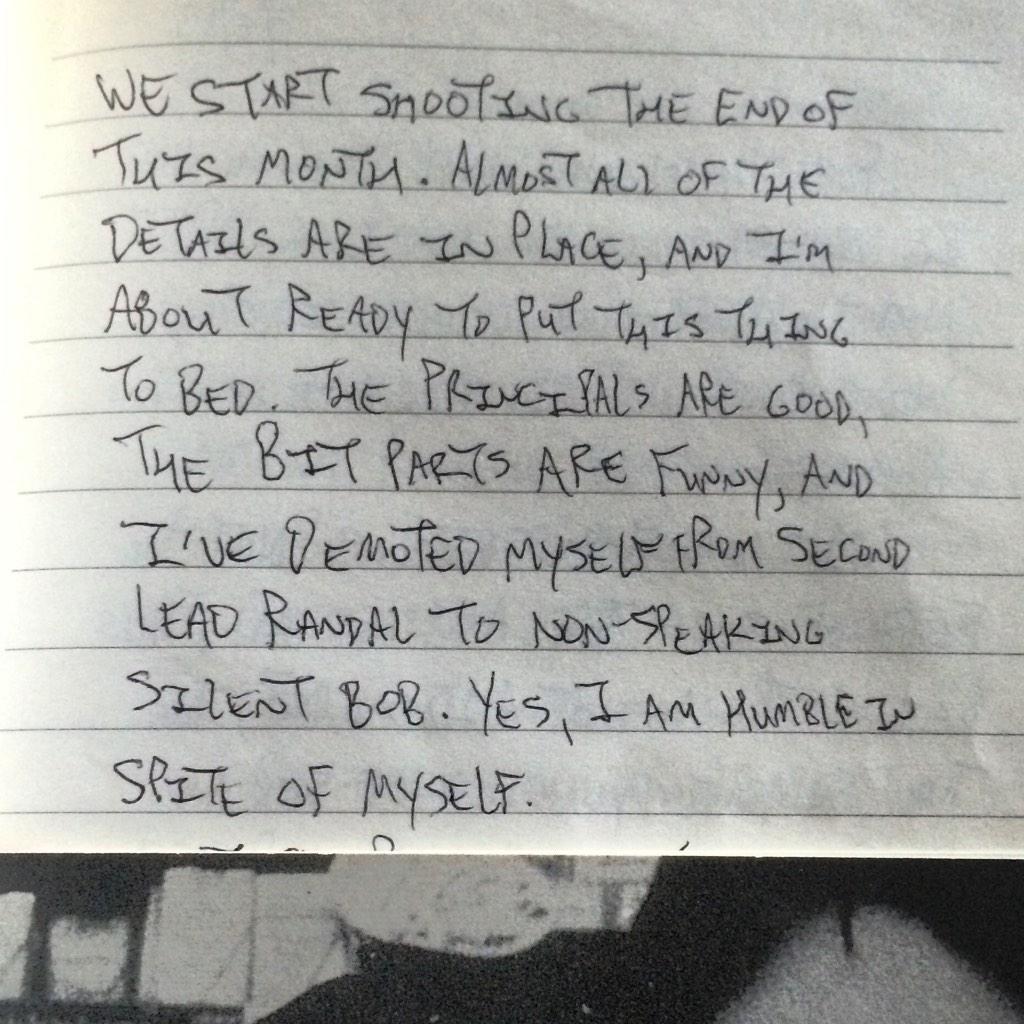 WE START SHOOTING THE END OF
THIS MONTH. ALMOST ALL OF THE
DETAILS ARE IN PLACE, AND I'M
ABOUT READY TO PUT THIS THING
TO BED. THE PRINCIPALS ARE GOOD,
THE BIT PARTS ARE FUNNY, AND
I'VE DEMOTED MYSELF FROM SECOND
LEAD RANDAL TO NON-SPEAKING
SILENT BOB. YES, I AM HUMBLE IN
SPITE OF MYSELF.